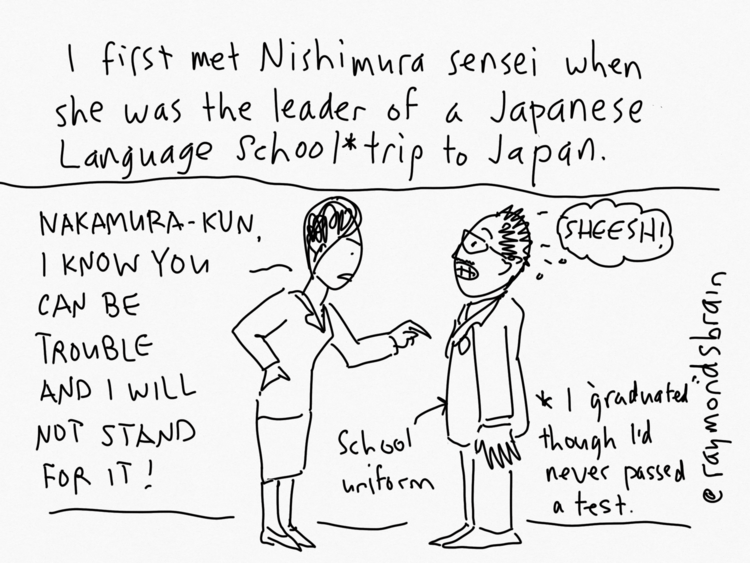 I first met Nishimura sensei when
she was the leader of a Japanese
Language School* trip to Japan.
NAKAMURA-KUN,
I KNOW YOU
CAN BE
TROUBLE
AND I WILL
NOT STAND
FOR IT!
SHEESH!
School
uniform
* I "graduated"
though I'd
never passed
a test.
@raymondsbrain